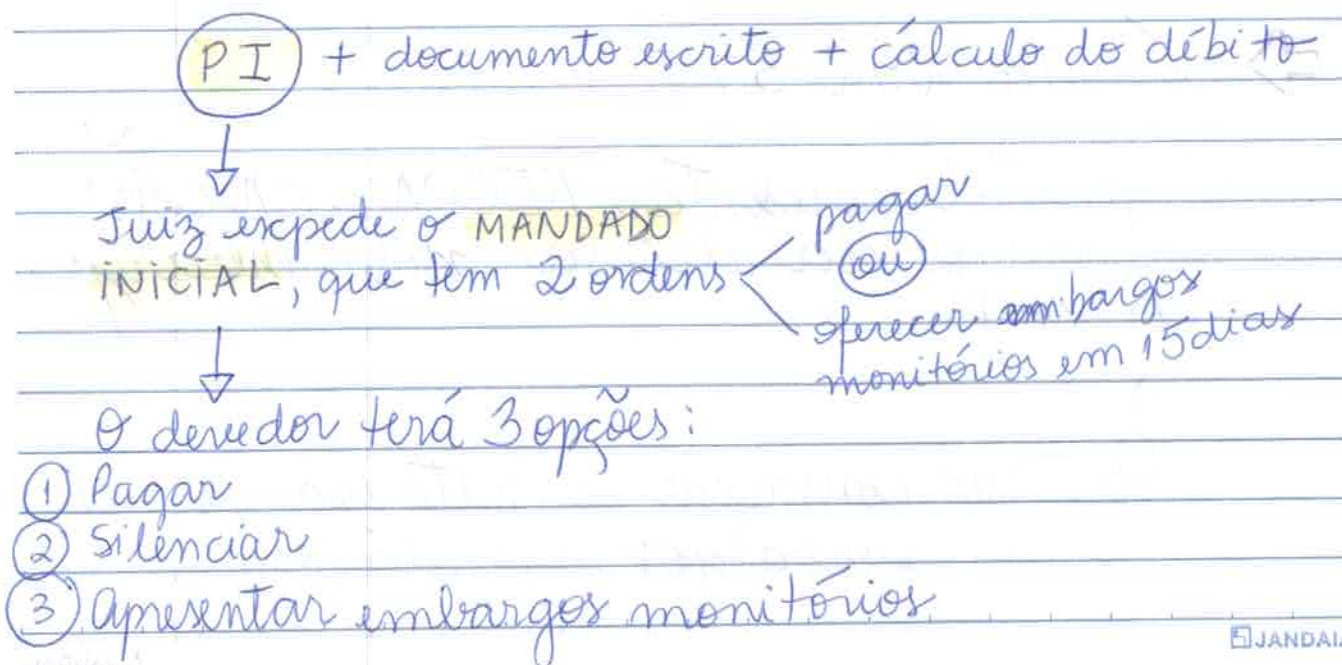 PI + documento escrito + cálculo do débito
Juiz expede o MANDADO
INICIAL, que tem 2 ordens
pagar
ou
oferecer embargos
monitórios em 15 dias
O devedor terá 3 opções:
1 Pagar
2 Silenciar
3 Apresentar embargos monitórios
JANDAIA